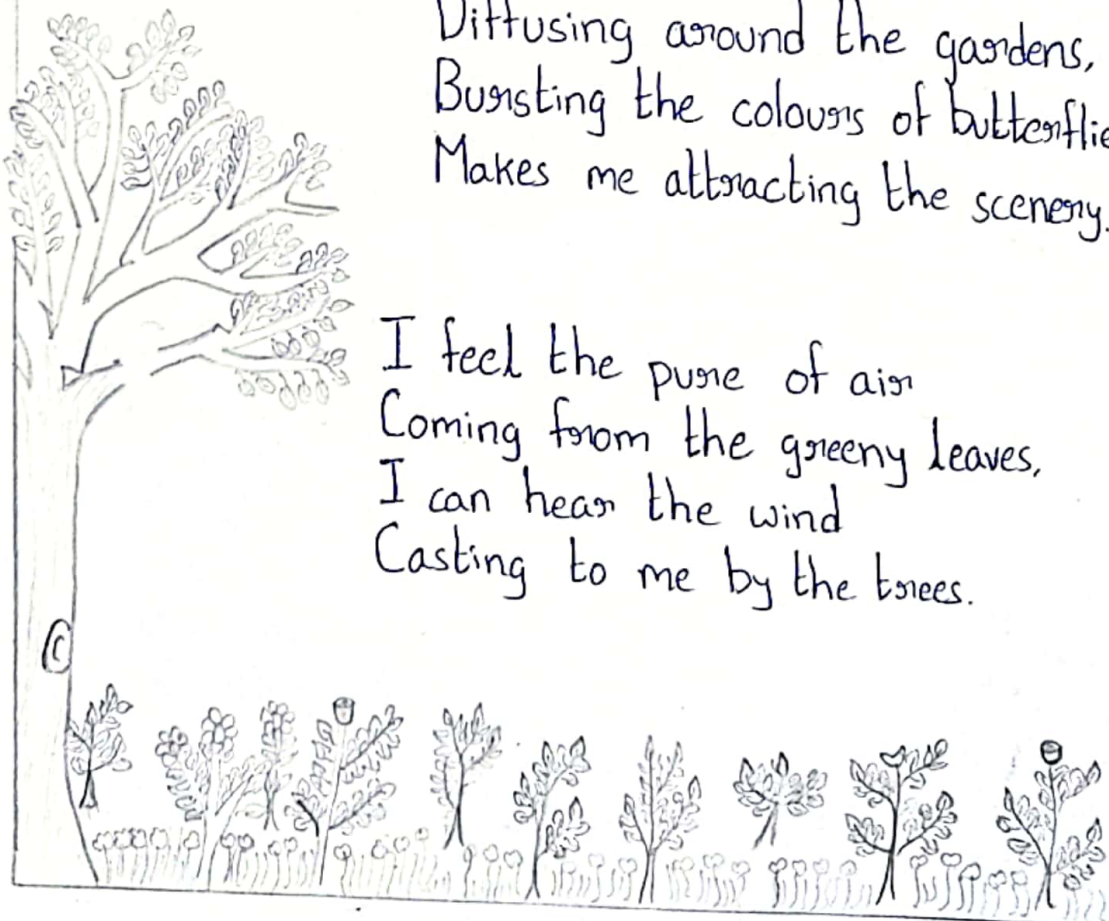 Diffusing around the gardens,
Bursting the colours of butterflie
Makes me attracting the scenery.
I feel the pure of air
Coming from the greeny leaves,
I can hear the wind
Casting to me by the trees.